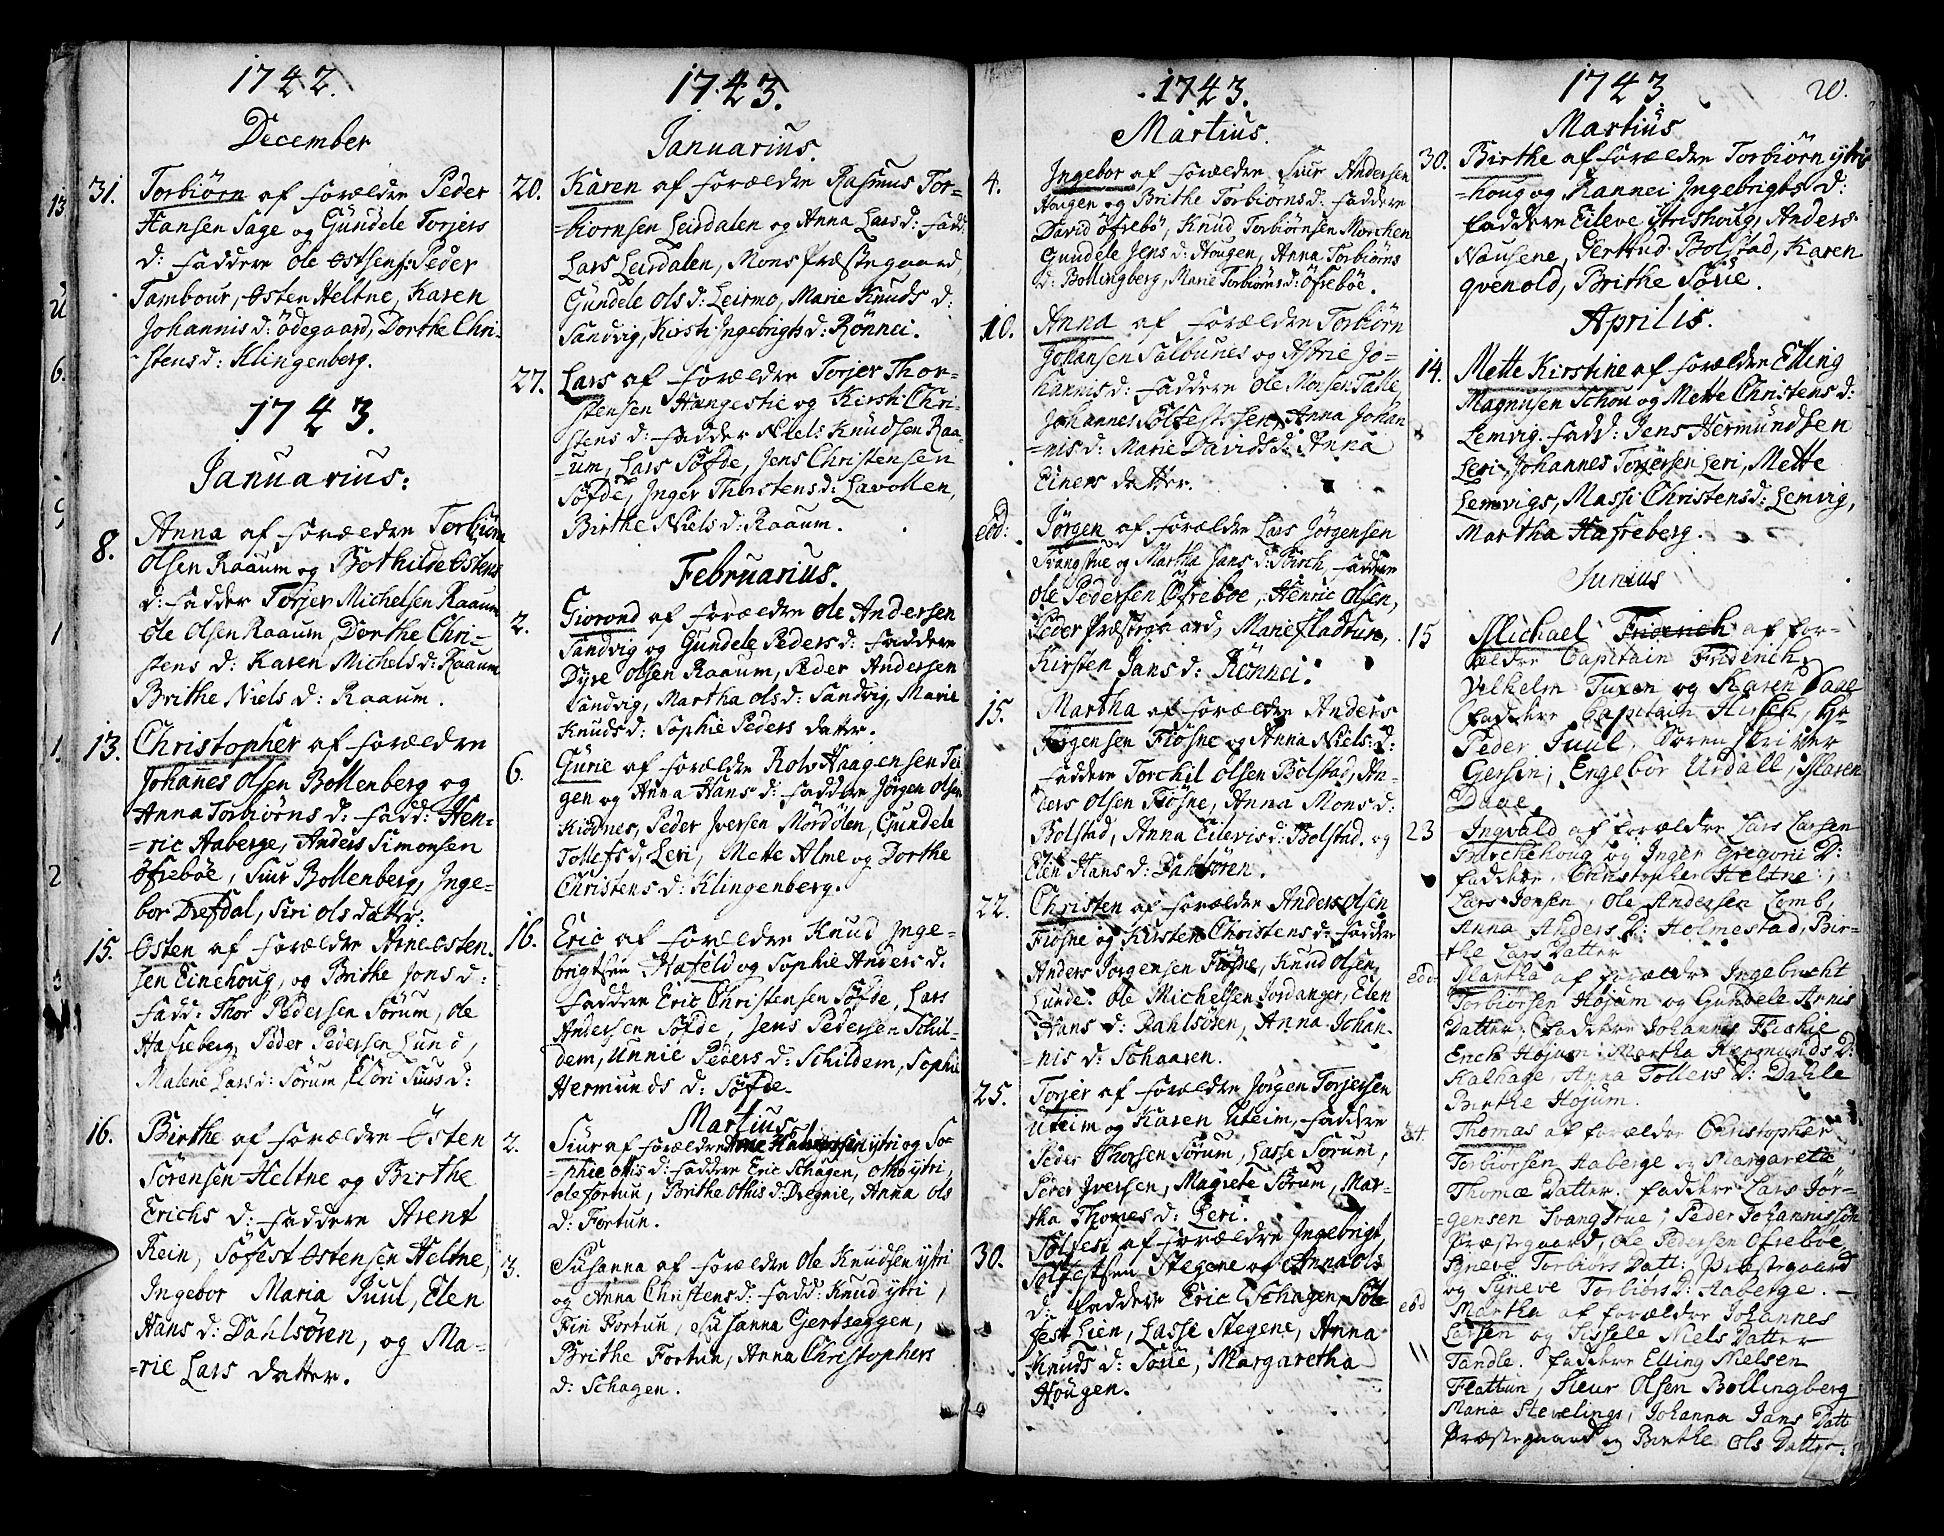 1742.
December
31. Torbiørn af forældre Peder
Hansen Sage og Gundele Torjers
d: Faddere Ole Ostsen, Peder
Tambour, Osten Heltne, Karen
Johannis d: Ödegaard, Dorthe Chri-
stens d: Klingenberg.
1743.
Januarius:
8. Anna af forældre Torbiørn
Olsen Raaum og Bothilde Ostens
d: Fadder Torjer Michelsen Raaum
Ole Olsen Raaum, Dorthe Chri-
stens d: Karen Michels d: Raaum
Brithe Niels d: Raaum.
13. Christopher af forældre
Johannes Olsen Bollenberg og
Anna Torbiørns d: Fadd: Hen-
=ric Aaberge, Anders Simonsen
Öfrebøe, Siur Bollenberg, Inge-
bor Drefdal, Siri Ols datter.
15. Osten af forældre Arne Osten-
sen Einehoug, og Brithe Jons d:
Fadd: Thor Pedersen Sorum, Ole
Hafseberg, Peder Pedersen Lund,
Malene Lars d: Sorum, Elsri Siurs d:
16. Birthe af forældre Östen
Sörensen Heltne og Birthe
Erichs d: Faddere Arent
Rein, Söfest Ostensen Heltne,
Ingebor Maria Juul, Elen
Hans d: Dahlsören, og Ma-
=rie Lars datter.
1743.
Januarius.
20. Karen af forældre Rasmus Tor-
=biornsen Leirdalen og Anna Lars d: Fadd:
Lars Leirdalen, Mons Præstegaard,
Gundele Ols d: Leirmo, Marie Knuds d:
Sandvig, Kirsti Ingebrigts d: Rønnei.
27. Lars af forældre Torjer Thor-
stensen Hangestie og Kirsti Chri-
stens d: Fadder Niels Knudsen Raa-
=um, Lars Söfde, Jens Christensen
Söfde, Inger Thorstens d: Lavollen,
Birthe Niels d: Raaum.
Februarius.
2. Giorond af forældre Ole Andersen
Sandvig og Gundele Peders d: Faddere
Dyre Olsen Raaum, Peder Andersen
Sandvig, Martha Ols d: Sandvig, Marie
Knuds d: Sophie Peders datter.
6. Gurie af forældre Rolv Haagensen Tei
gen og Anna Hans d: Faddere Jørgen Olsen
Kiödnes, Peder Iversen Mördölen, Gundele
Tollefs d: Leri, Mette Alme og Dorthe
Christens d: Klingenberg.
16. Eric af forældre Knud Inge-
brigtsen Hafeld og Sophie Anders d.
Faddere Eric Christensen Söfde, Lars
Andersen Söfde, Jens Pedersen Schil-
dem, Unnie Peders d: Schildem, Sophie
Hermunds d: Söfde.
Martius
2. Siur af forældre Arne Halvorsen ytri og So-
=phie Ottis d: Faddere Eric Schagen, Otho ytri,
Ole Fortun, Brithe Othis d: Dregnie, Anna Ols
d: Fortun.
3. Susanna af forældre Ole Knudsen ytri
og Anna Christens d: Fadd: Knud ytri,
Fin Fortun, Susanna Gertseggen,
Brithe Fortun, Anna Christophers
d: Schagen.
1743.
Martius.
4. Ingebor af forældre Siur Andersen
Hougen og Brithe Torbiörns d: Faddere
David Öfrebö, Knud Torbiörnsen Morchen
Gundele Jens d: Hougen, Anna Torbiörns
d: Bollingberg, Marie Torbiörns d: Öfrebøe.
10. Anna af forældre Torbiörn
Johansen Salbunes og Astrie Jo-
hannis d: Faddere Ole Monsen Talle
Johannes Sölfestsen, Anna Johan-
=nis d: Marie Davids d: Anna
Einers datter.
eod: Jørgen af forældre Lars Jørgensen
Svangstue og Martha Jans d: Birch, Faddere
Ole Pedersen Öfreboe, Henric Olsen,
Peder Præstegaard, Marie Fladtun,
Kirsten Jans d: Rönnei.
15. Martha af forældre Anders
Jørgensen Fiösne og Anna Niels d:
Faddere Torchil Olsen Bolstad, An-
ders Olsen Fiösne, Anna Mons d:
Bolstad, Anna Eilevis d: Bolstad og
Elen Hans d: Dahlsören.
22. Christen af forældre Anders Olsen
Fiosne og Kirsten Christens d: Faddere
Anders Jorgensen Fiosne, Knud Olsen
Lunde. Ole Michelsen Jordanger, Elen
Hans d: Dahlsören, Anna Johan-
=nis d: Sohaaren.
25. Torjer af forældre Jörgen Torjersen
Uteim og Karen Uteim, Faddere
Peder Thorsen Sorum, Lasse Sorum,
Sören Iversen, Magrete Sorum, Mar-
tha Thomes d: Leri.
30. Sölfest af forældre Ingebrigt
Sölfestsen Stegene af Anna Ols
d: Faddere Eric Schagen, Söl-
fest Lien, Lasse Stegene, Anna
Knuds d: Soue, Margaretha
Hougen.
1743 20.
Martius
30. Birthe af forældre Torbiörn ytris
=houg og Rannei Ingebrigts d:
Faddere Eileve Ytrishoug, Anders
Nausene, Gertrud Bolstad, Karen
qvenold, Brithe Soue.
Aprilis.
14. Mette Kirstine af forældre Elling
Magnusen Schou og Mette Christens d:
Lemvig. Fadd: Jens Hermundsen
Leri, Johannes Torjersen Leri, Mette
Lemvigs, Masse Christens d: Lemvig,
Martha Hafseberg.
Junius
15 Michael Friderich af for-
ældre Capitain Friderich
Vilhelm Tuxen og Karen Daae
Faddere Capitain Hirsch, Hr
Peder Juul, Soren Skriver
Gersen, Engebor Urdall, Maren
Daae.
23 Ingvald af forældre Lars Larsen
Baschehoug og Inger Gregorii D:
Faddere Christopher Heltne,
Lars Jonsen, Ole Andersen Lomb,
Anna Anders D: Holmestad, Bir-
the Lars Datter
eod. Martha af forældre Ingebricht
Torbiorsen Hojum og Gundele Arnis
Datter. Faddere Johannes Fleskie
Erich Hojum, Martha Hermunds D:
Kalhage, Anna Tollefs D: Dahle
Birthe Hojum.
34. Thomas af forældre Christopher
Torbiorsen Aaberge og Margareta
Thomæ Datter. Faddere Lars Jör-
=gensen Svangstue, Peder Johannissön
Præstegaard, Ole Pedersen Ofrebøe
Breve Torbiors Datt: Præstegaard
og Syneve Torbiors D: Aaberge.
eod Martha af forældre Johannes
Larsen og Sissele Niels Datter
Tandle. Faddere Elling Nielsen
Flattun, Sieur Olsen Bollingberg
Maria Stevelings, Johanna Jans Datt
Præstegaard og Birthe Ols Datter.